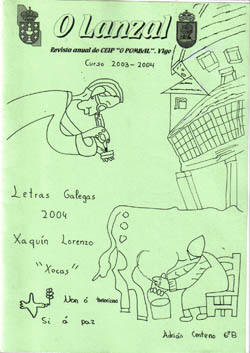 O Lanzal
Revista anual do CEIP "O POMBAL". Vigo
Curso 2003-2004
Letras Galegas
2004
Xaquín Lorenzo
"Xocas"
Non ó terrorismo
Si á paz
Adrián Centeno 6ºB